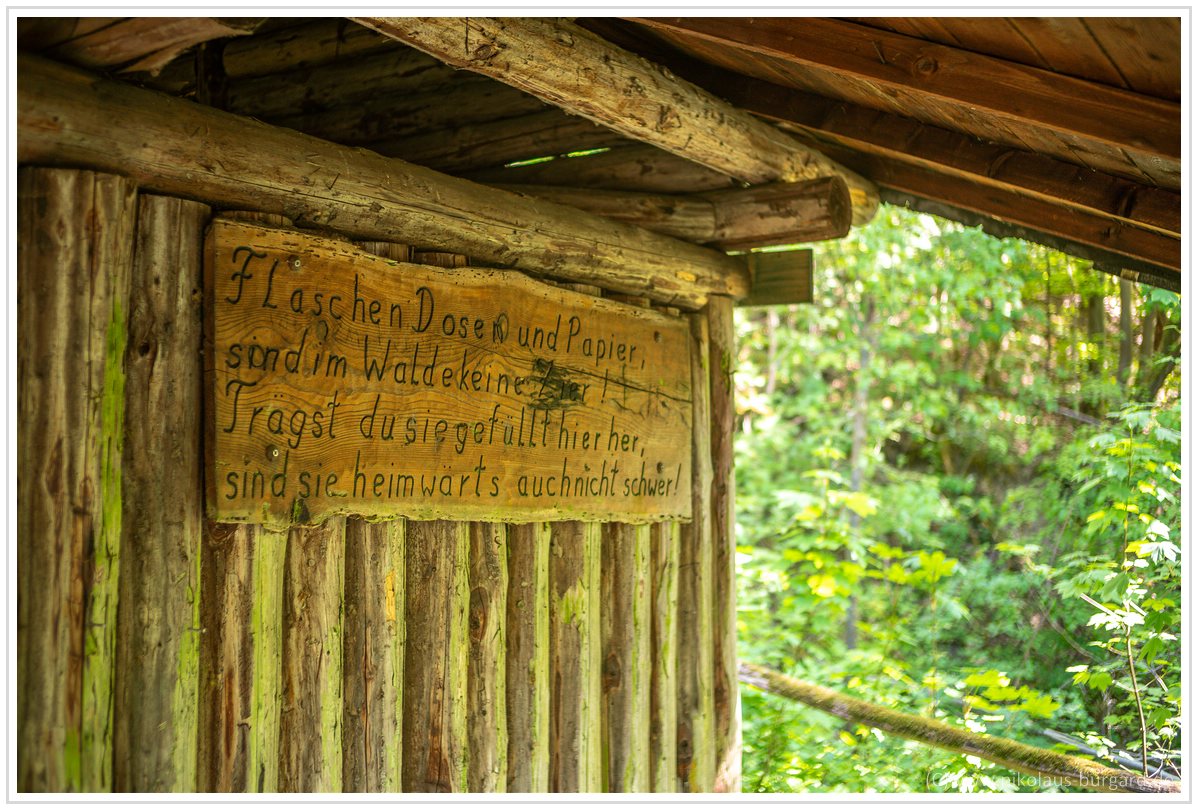 Flaschen Dosen und Papier,
sind im Walde keine Zier!
Trägst du sie gefüllt hier her,
sind sie heimwärts auch nicht schwer!